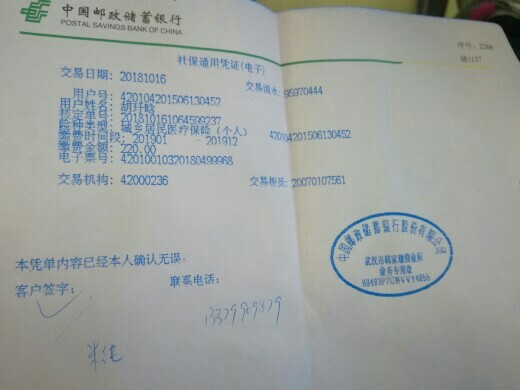 中国邮政储蓄银行
POSTAL SAVINGS BANK OF CHINA
序号: 2266
储1137
社保通用凭证(电子)
交易日期: 20181016
交易流水: 95970444
用户号: 420104201506130452
用户姓名: 胡玕晗
核定单号: 201810161064599237
险种类型: 城乡居民医疗保险(个人) 420104201506130452
缴费时间段: 201901 - 201912
缴费金额: 220.00
电子票号: 4201001032018049996​8
交易机构: 42000236
交易柜员: 20070107561
中国邮政储蓄银行股份有限公司
业务专用章
69493P7GNVVY4056
本凭单内容已经本人确认无误。
客户签字:
联系电话: